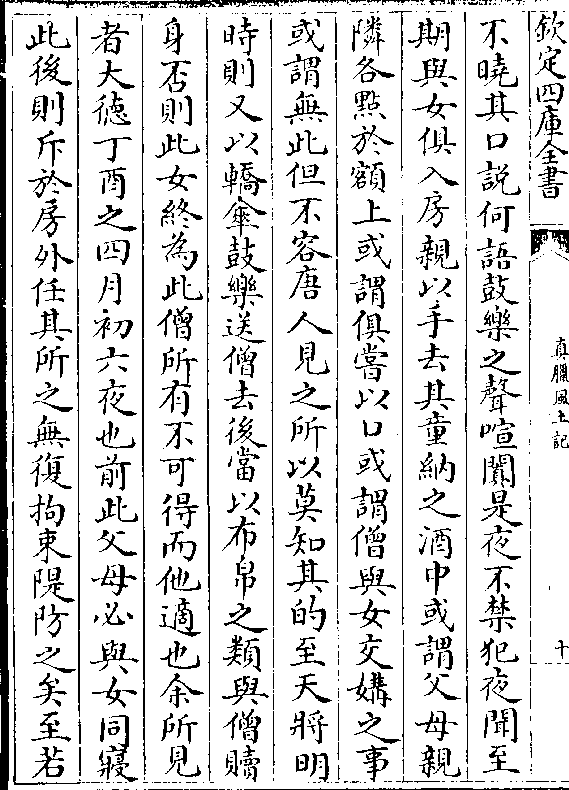 欽定四庫全書
真臘風土記
十
不曉其口說何語鼓樂之聲喧闐是夜不禁犯夜聞至
期與女俱入房親以手去其童納之酒中或謂父母親
隣各點於額上或謂俱嘗以口或謂僧與女交媾之事
或謂無此但不容唐人見之所以莫知其的至天將明
時則又以轎傘鼓樂送僧去後當以布帛之類與僧贖
身否則此女終為此僧所有不可得而他適也余所見
者大德丁酉之四月初六夜也前此父母必與女同寢
此後則斥於房外任其所之無復拘束隄防之矣至若